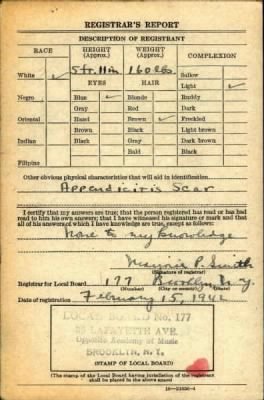 REGISTRAR'S REPORT
DESCRIPTION OF REGISTRANT
RACE HEIGHT (Approx.) WEIGHT (Approx.) COMPLEXION
White ✓ 5 ft. 11 in. 160 lbs. Sallow
EYES HAIR Light ✓
Negro Blue ✓ Blonde Ruddy
Gray Red Dark
Oriental Hazel Brown ✓ Freckled
Brown Black Light brown
Indian Black Gray Dark brown
Bald Black
Filipino
Other obvious physical characteristics that will aid in identification
Appendicitis Scar
I certify that my answers are true; that the person registered has read or has had
read to him his own answers; that I have witnessed his signature or mark and that
all of his answers of which I have knowledge are true, except as follows:
None to my knowledge
P. Smith
(Signature of registrar)
Registrar for Local Board 177 Brooklyn N.Y.
(Number) (City or county) (State)
Date of registration February 15, 1942
LOCAL BOARD No. 177
LAFAYETTE AVE.
Opposite Academy of Music
BROOKLYN, N. Y.
(STAMP OF LOCAL BOARD)
(The stamp of the Local Board having jurisdiction of the registrant
shall be placed in the above space)